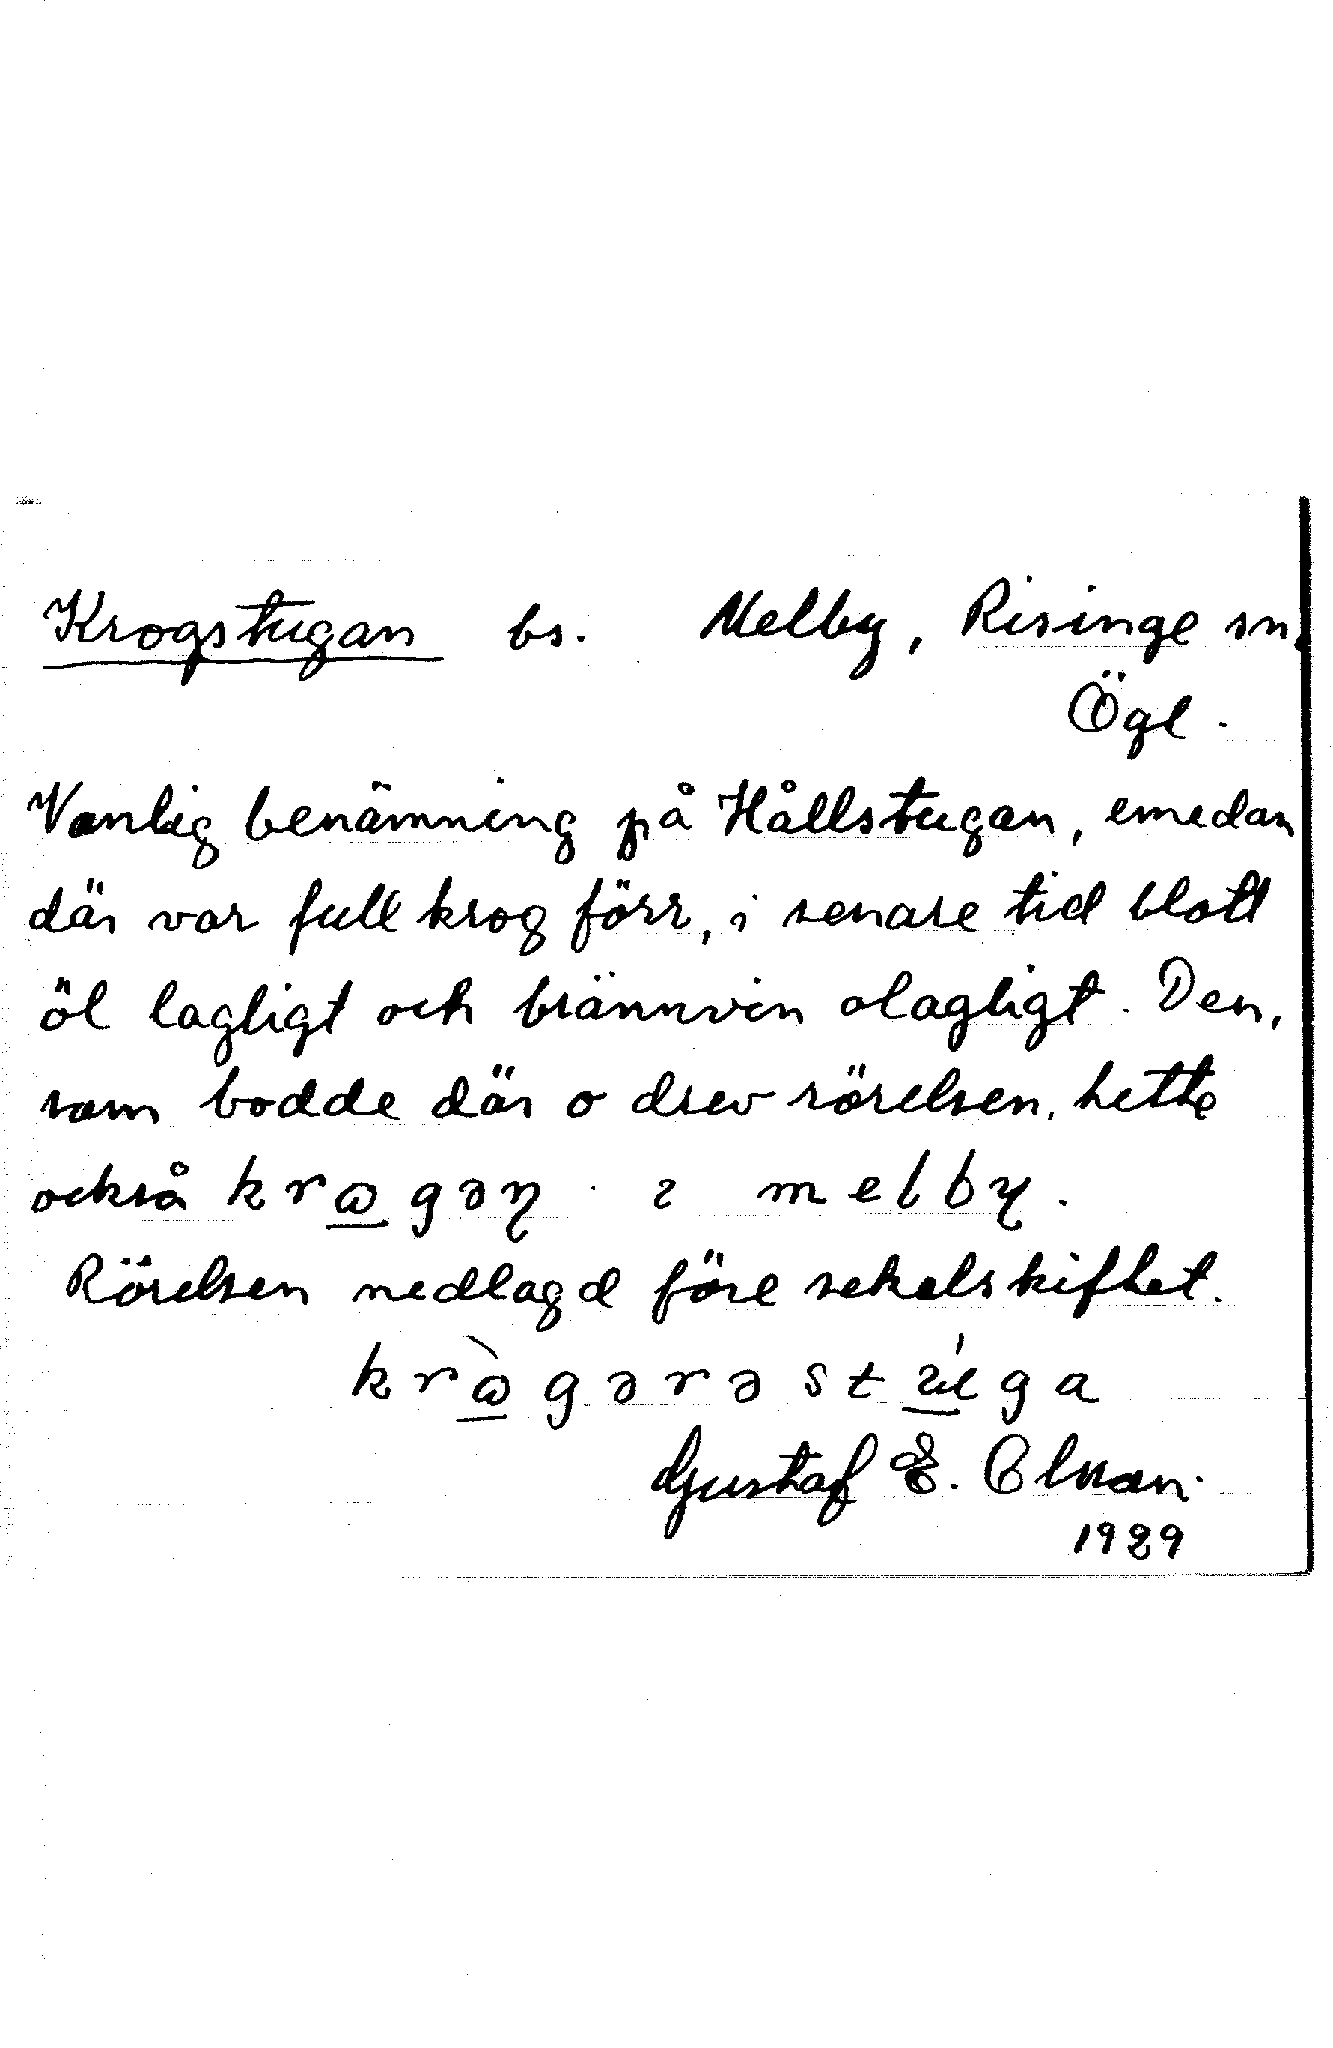 Krogstugan bs. Melby, Risinge sn.
Ögl.
Vanlig benämning på Hållstugan, emedan
där var full krog förr, i senare tid blott
öl lagligt och brännvin olagligt. Den,
som bodde där o drev rörelsen, hette
också krɷgəɳ ɩ melby.
Rörelsen nedlagd före sekelskiftet.
krɷ̀gərəstúga
Gustaf E.
1929